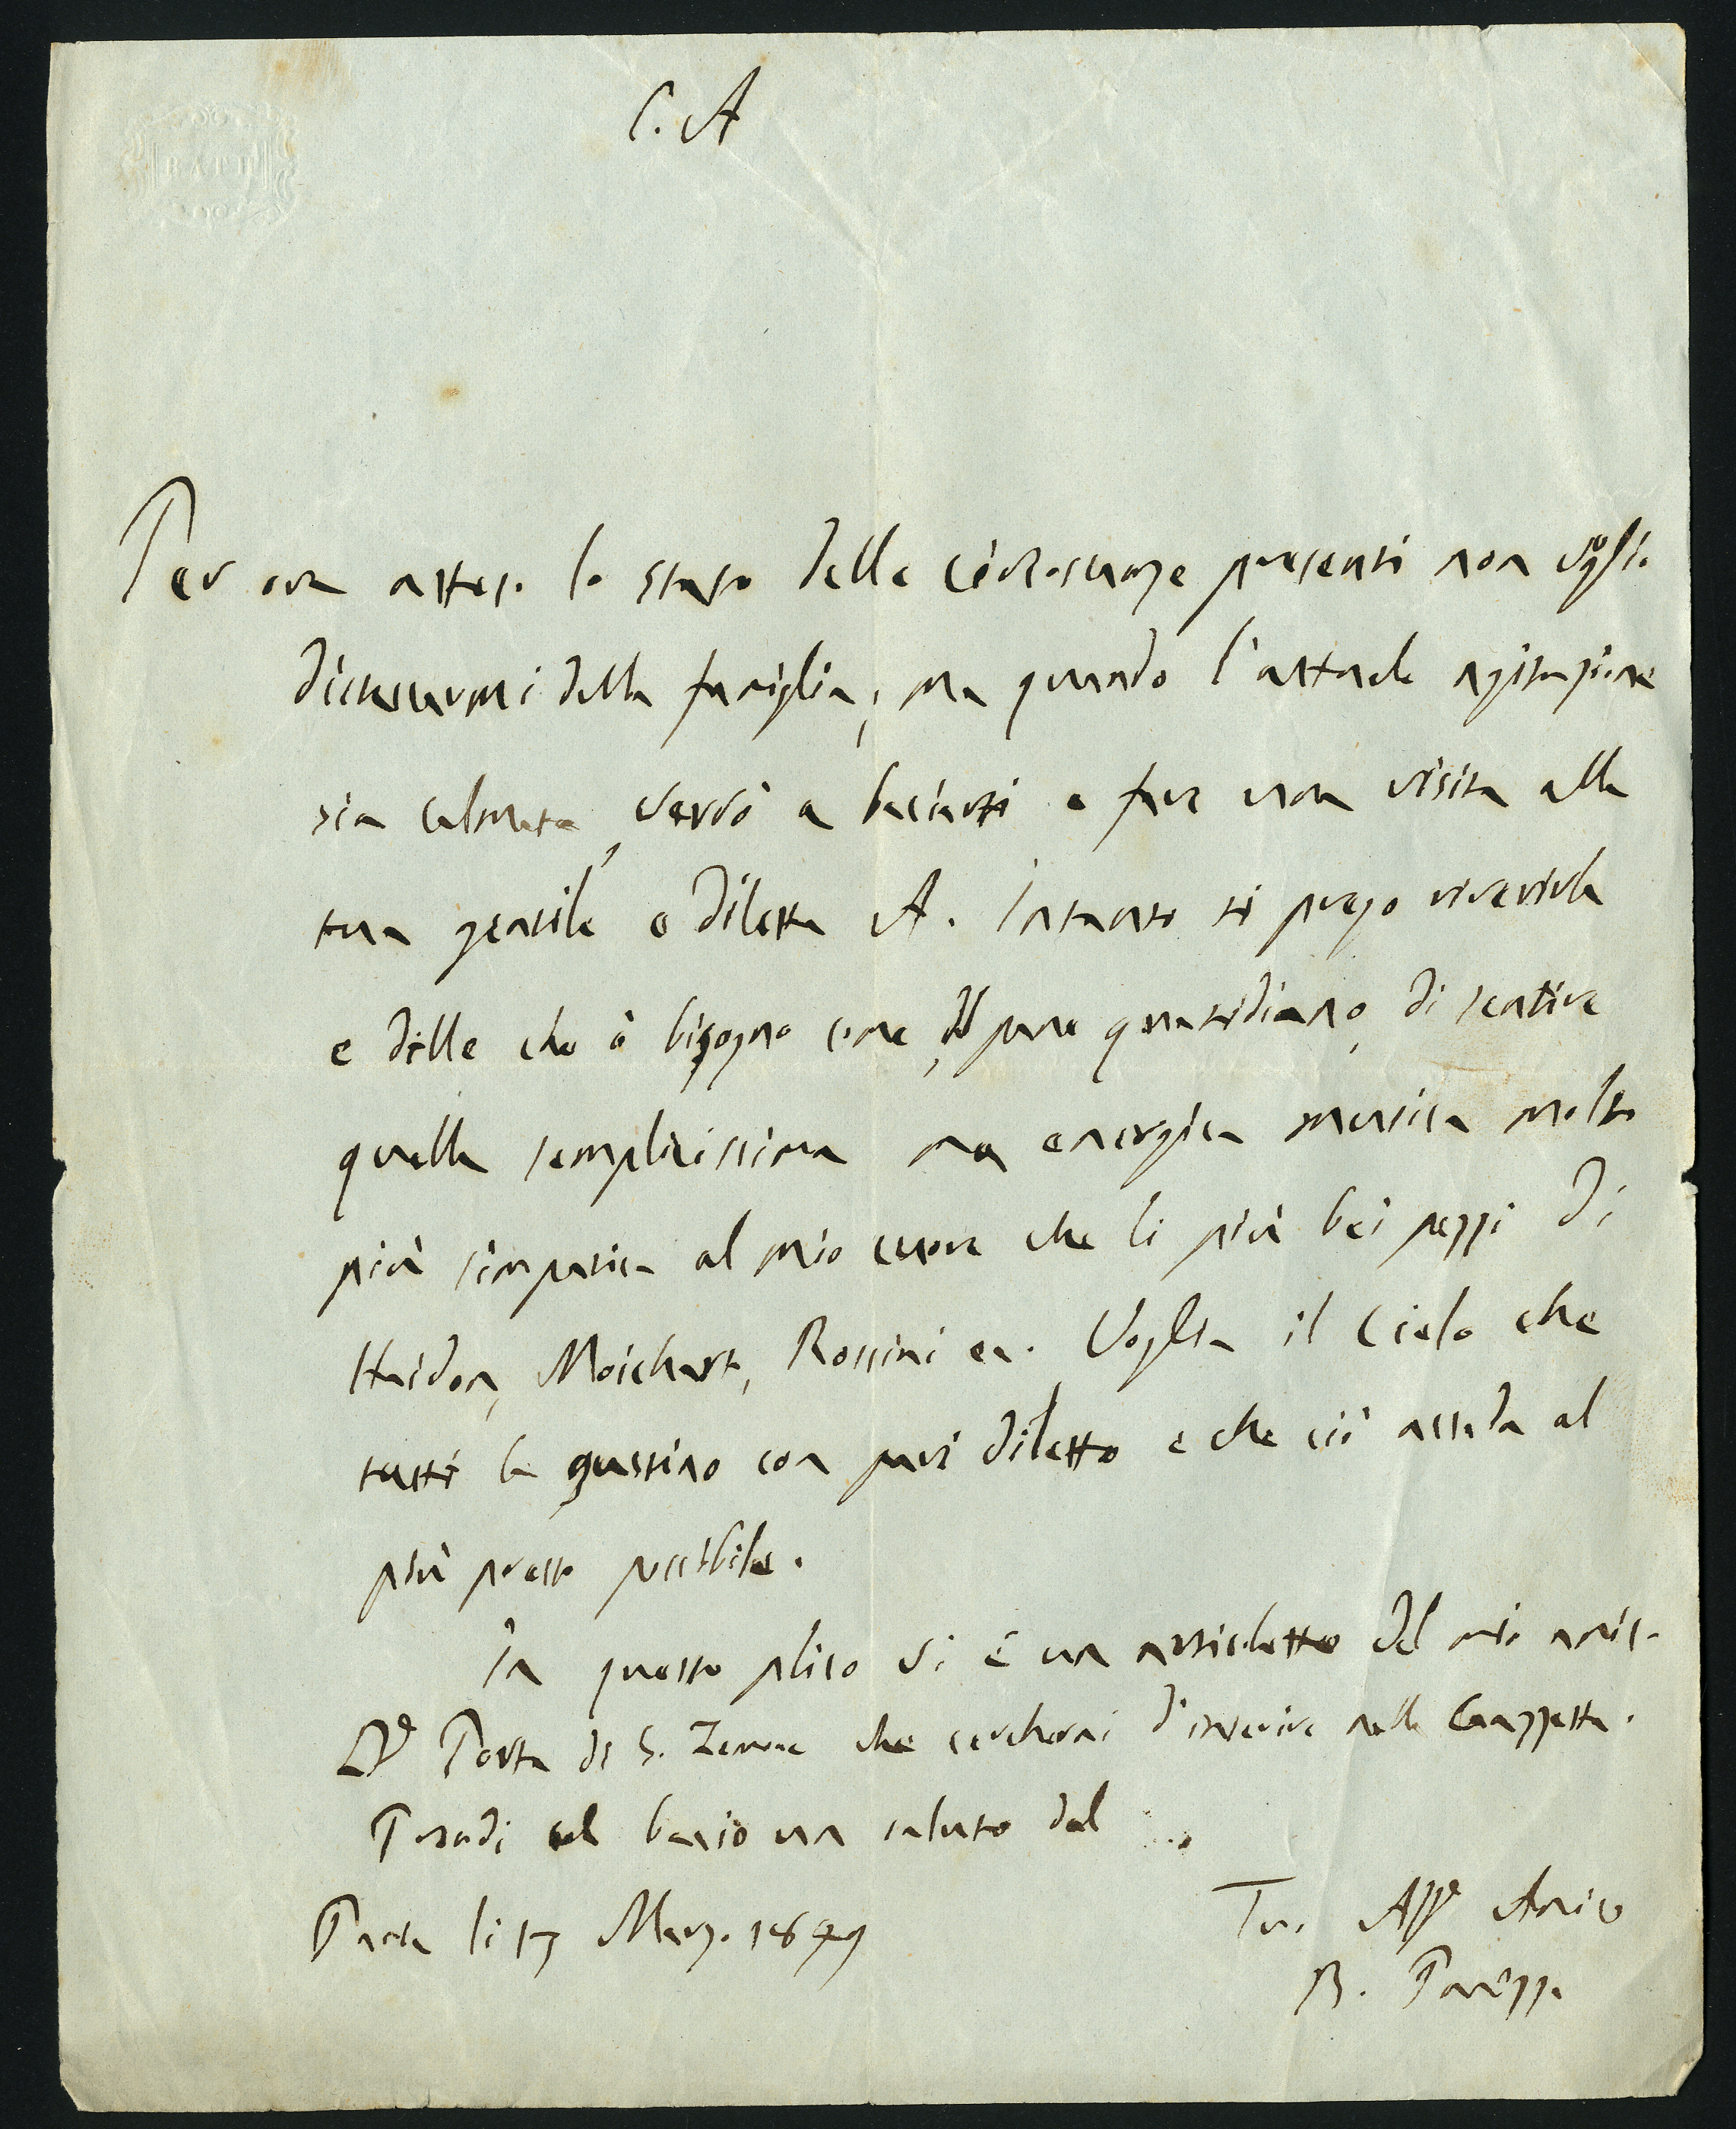 BATH
C. A
Per ora atteso lo stato delle circostanze presenti non voglio
discostarmi dalla famiglia, ma quando l'attuale agitazione
sia calmata, verrò a baciarti e far una visita alla
tua gentile e diletta A. Intanto ti prego riverirla
e dille che ò bisogno come del pane quotidiano, di sentire
quella semplicissima ma energica musica molto
più simpatica al mio cuore che li più bei pezzi di
Haidon, Moichart, Rossini ec. Voglia il Cielo che
tutti la gustino con pari diletto e che ciò accada al
più presto possibile.
In questo plico vi è un articoletto del mio amico
Dr Porta di S. Zenone che cercherai d'inserire nella Gazzetta.
Prendi col bacio un saluto dal
li 17 Marzo 1849
Tuo Affo Amico
B.